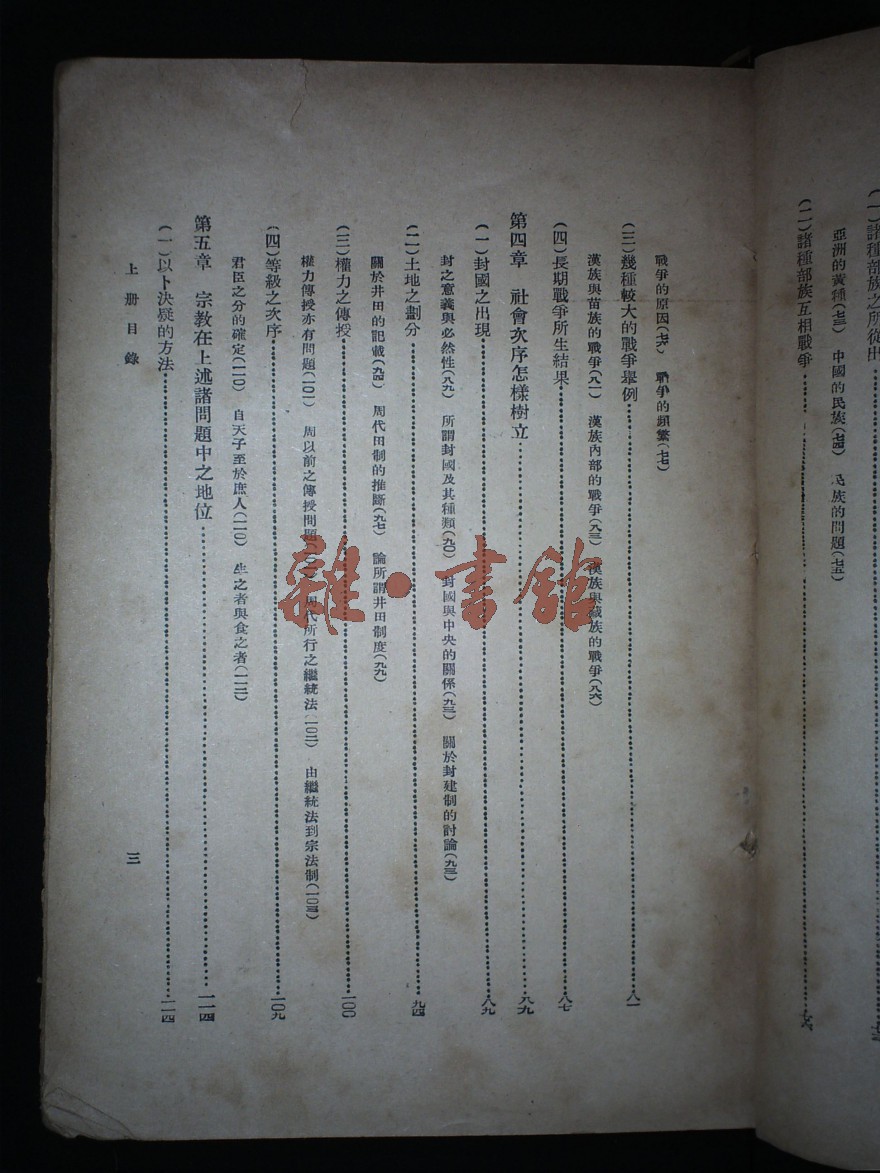 (一)諸種部族之所從出
亞洲的黃種(七三) 中國的民族(七四) 民族的問題(七五)
(二)諸種部族互相戰爭……七六
戰爭的原因(七六) 戰爭的頻繁(七七)
(三)幾種較大的戰爭舉例……八一
漢族與苗族的戰爭(八一) 漢族內部的戰爭(八三) 漢族與藏族的戰爭(八六)
(四)長期戰爭所生結果……八七
第四章 社會次序怎樣樹立……八九
(一)封國之出現……八九
封之意義與必然性(八九) 所謂封國及其種類(九〇) 封國與中央的關係(九三) 關於封建制的討論(九三)
(二)土地之劃分……九四
關於井田的記載(九四) 周代田制的推斷(九七) 論所謂井田制度(九九)
(三)權力之傳授……一〇〇
權力傳授亦有問題(一〇一) 周以前之傳授問題 周代所行之繼統法(一〇二) 由繼統法到宗法制(一〇三)
(四)等級之次序……一〇九
君臣之分的確定(一一〇) 自天子至於庶人(一一〇) 生之者與食之者(一一二)
第五章 宗教在上述諸問題中之地位……一一四
(一)以卜決疑的方法……一一四
上册目錄
三
雜·書館